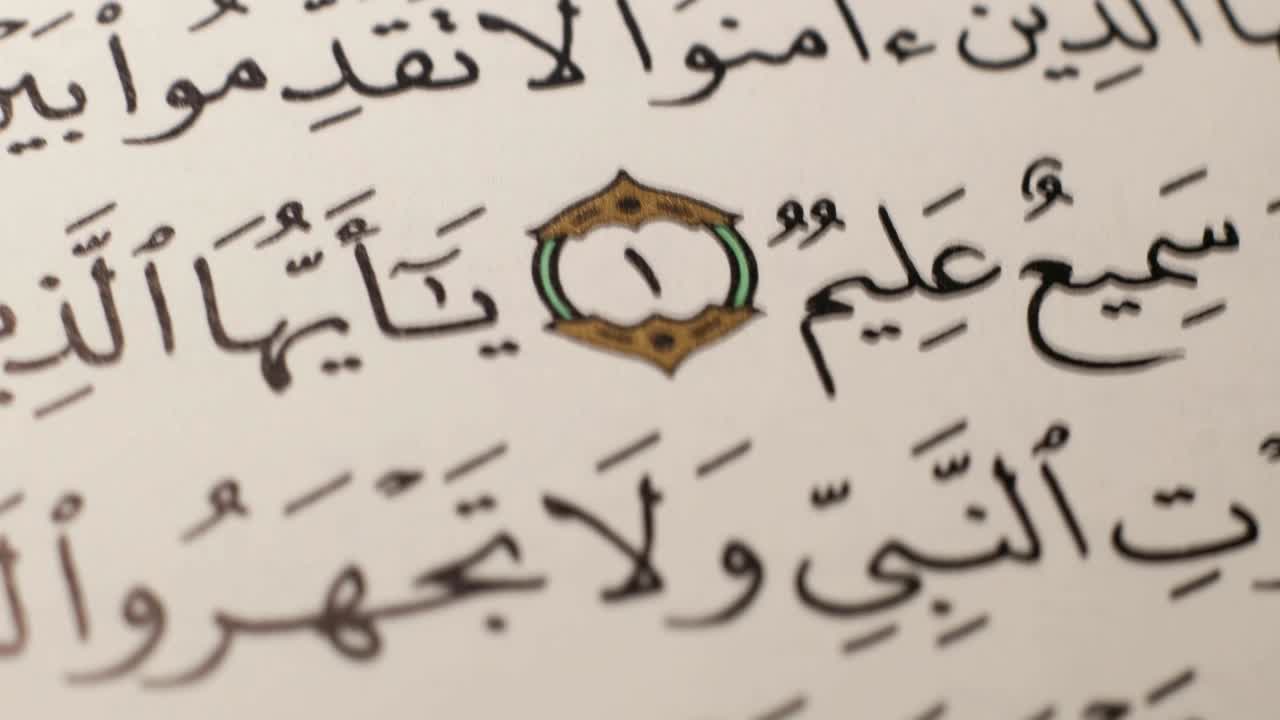 ٱلَّذِينَ ءَامَنُوا۟ لَا تُقَدِّمُوا۟ بَيْنَ
سَمِيعٌ عَلِيمٌۭ ١ يَـٰٓأَيُّهَا ٱلَّذِينَ
ٱلنَّبِىِّ وَلَا تَجْهَرُوا۟